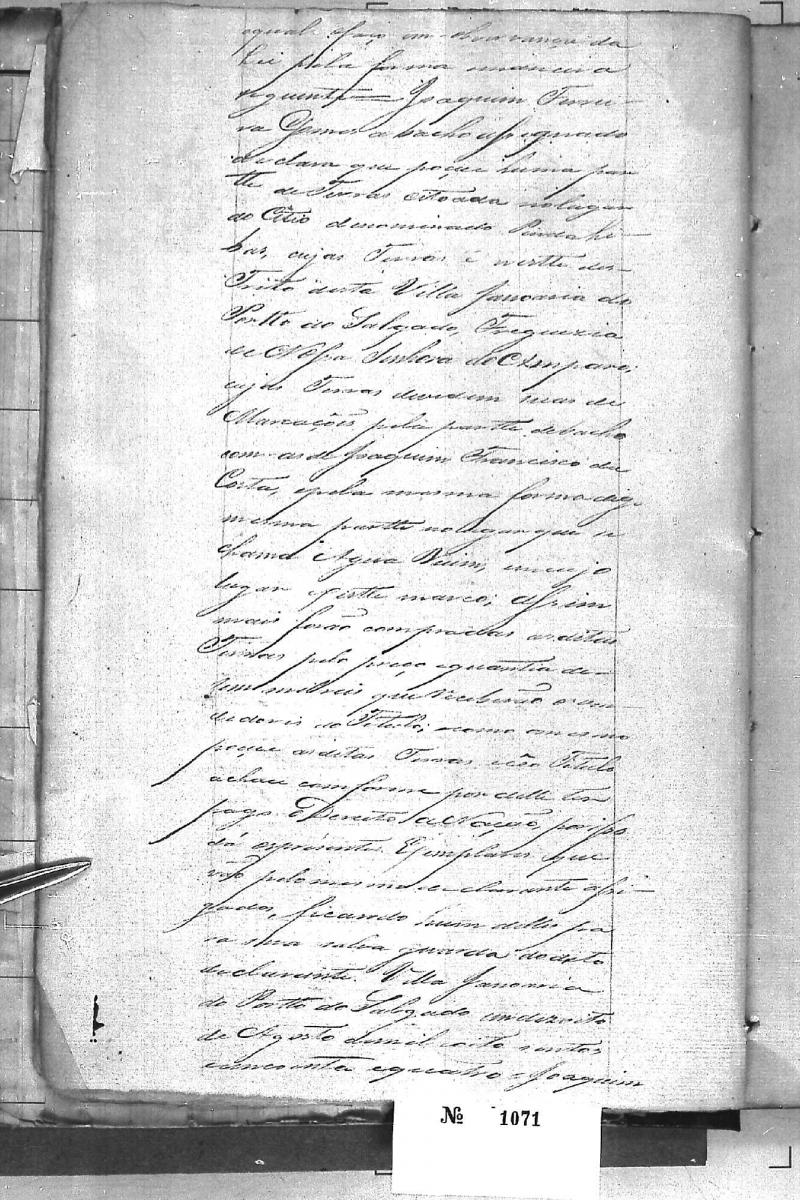 qual faço em observança da
Lei pela forma emaneira
seguinte = Joaquim Ferrei-
ra Gomes abaicho assignado
declara que poçue huma par
tte de Terras citoada no lugar
do Citio denominado Pindahi-
bas, cujas Terras é nestte des-
Trito desta Villa Januaria do
Portto do Salgado, Freguezia
de Nossa Senhora do Amparo,
cujas Terras devedem suas de
Marcações pela partte debacho
com as de Joaquim Francisco da
Costa, epela mesma forma da
mesma partte no lugar que se
chama Agua Ruim, em cujo
lugar estte marco; Assim
mais forão compradas as ditas
Terras pelo preço equantia de
Cem mil reis que receberão os ven
dedores do Titulo, como o mesmo
poçue as ditas Terras e são Titulo
achace comforme por delle ter
pago o Direito a Nação, por isso
dá o prezente Ejemplares que
vão pelo mesmo declarante assi-
gnados, ficando hum delles pa
ra sua salva guarda do dito
declarante. Villa Januaria
do Portto do Salgado em dezoito
de Agosto de mil oito sentos
cincoenta equatro = Joaquim
Nº 1071